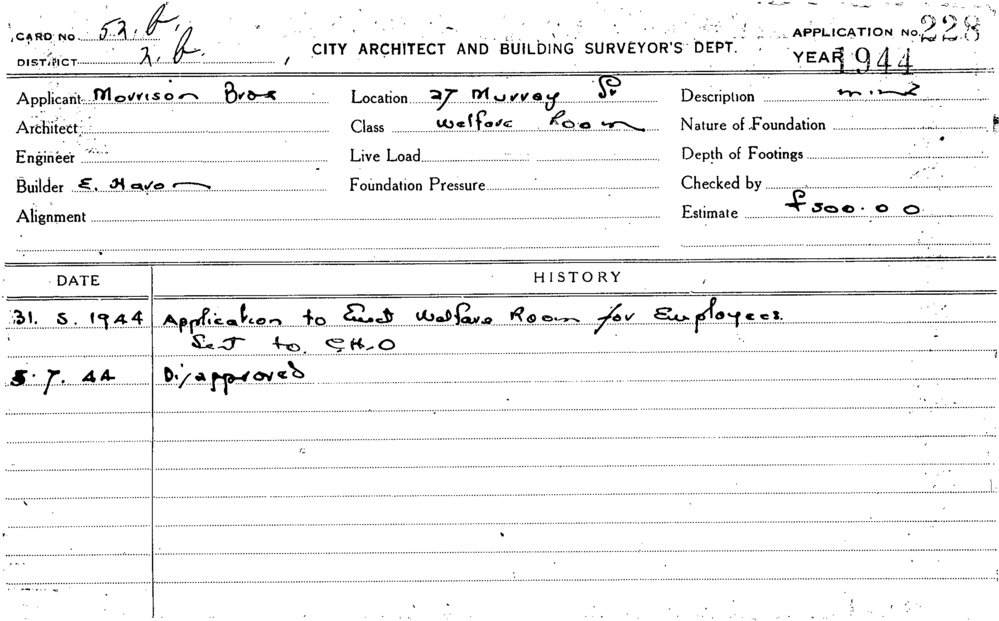 CARD NO. 52.b.
DISTRICT 2.b.
CITY ARCHITECT AND BUILDING SURVEYOR'S DEPT.
APPLICATION No. 228
YEAR 1944
Applicant Morrison Bros Location 27 Murray St Description
Architect Class Welfare Room Nature of Foundation
Engineer Live Load Depth of Footings
Builder E. Foundation Pressure Checked by
Alignment Estimate £500.00
DATE HISTORY
31. 5. 1944 Application to Erect Welfare Room for Employees.
Sent to C.H.O
5. 7. 44 Disapproved